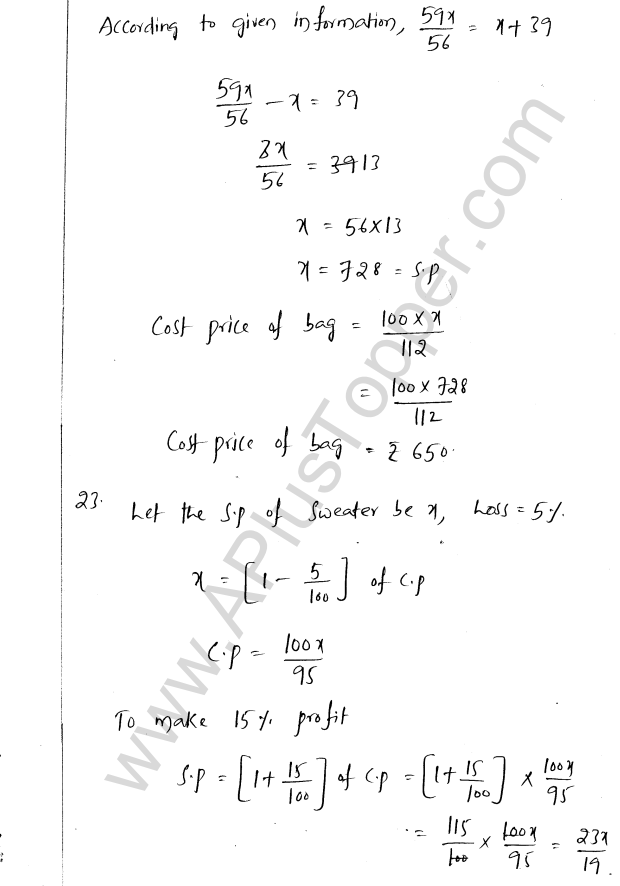 According to given information, 59x/56 = x + 39
59x/56 - x = 39
3x/56 = 39 13
x = 56×13
x = 728 = S.P
Cost price of bag = 100 × x/112
= 100 × 728/112
Cost price of bag = ₹ 650.
23. Let the S.P of Sweater be x, Loss = 5%.
x = [1 - 5/100] of C.P
C.P = 100x/95
To make 15% profit
S.P = [1 + 15/100] of C.P = [1 + 15/100] × 100x/95
= 115/100 × 100x/95 = 23x/19.
www.APlusTopper.com